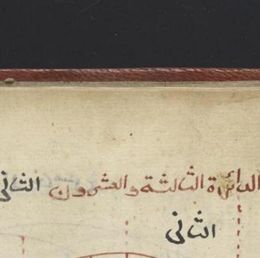 الدائرة الثالثة والعشرون الثاني
الثاني